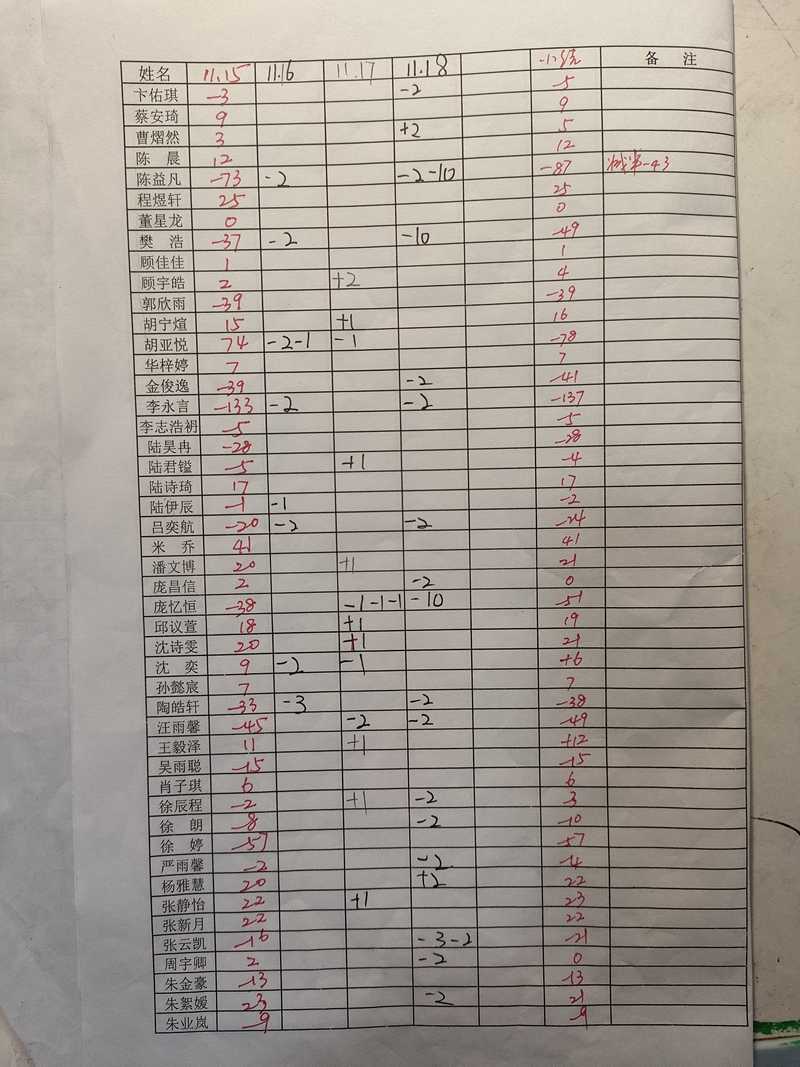 姓名 11.15 11.16 11.17 11.18 备 注
卞佑琪 -3 -2 -5
蔡安琦 9 9
曹熠然 3 +2 5
陈 晨 12 12
陈益凡 -73 -2 -2-10 -87 -43
程煜轩 25 25
董星龙 0 0
樊 浩 -37 -2 -10 -49
顾佳佳 1 1
顾宇皓 2 +2 4
郭欣雨 -39 -39
胡宁煊 15 +1 16
胡亚悦 74 -2-1 -1 -78
华梓婷 7 7
金俊逸 -39 -2 -41
李永言 -133 -2 -2 -137
李志浩翔 -5 -5
陆昊冉 -28 -28
陆君镒 -5 +1 -4
陆诗琦 17 17
陆伊辰 -1 -1 -2
吕奕航 -20 -2 -2 -24
米 乔 41 41
潘文博 20 +1 21
庞昌信 2 -2 0
庞忆恒 -38 -1-1-1 -10 -51
邱议萱 18 +1 19
沈诗雯 20 +1 21
沈 奕 9 -2 -1 +6
孙懿宸 7 7
陶皓轩 -33 -3 -2 -38
汪雨馨 -45 -2 -2 -49
王毅泽 11 +1 +12
吴雨聪 -15 -15
肖子琪 6 6
徐辰程 -2 +1 -2 3
徐 朗 -8 -2 -10
徐 婷 -57 -57
严雨馨 -2 -2 -4
杨雅慧 20 +2 22
张静怡 22 +1 23
张新月 22 22
张云凯 -16 -3-2 -21
周宇卿 2 -2 0
朱金豪 -13 -13
朱絮媛 23 -2 21
朱业岚 -9 -9